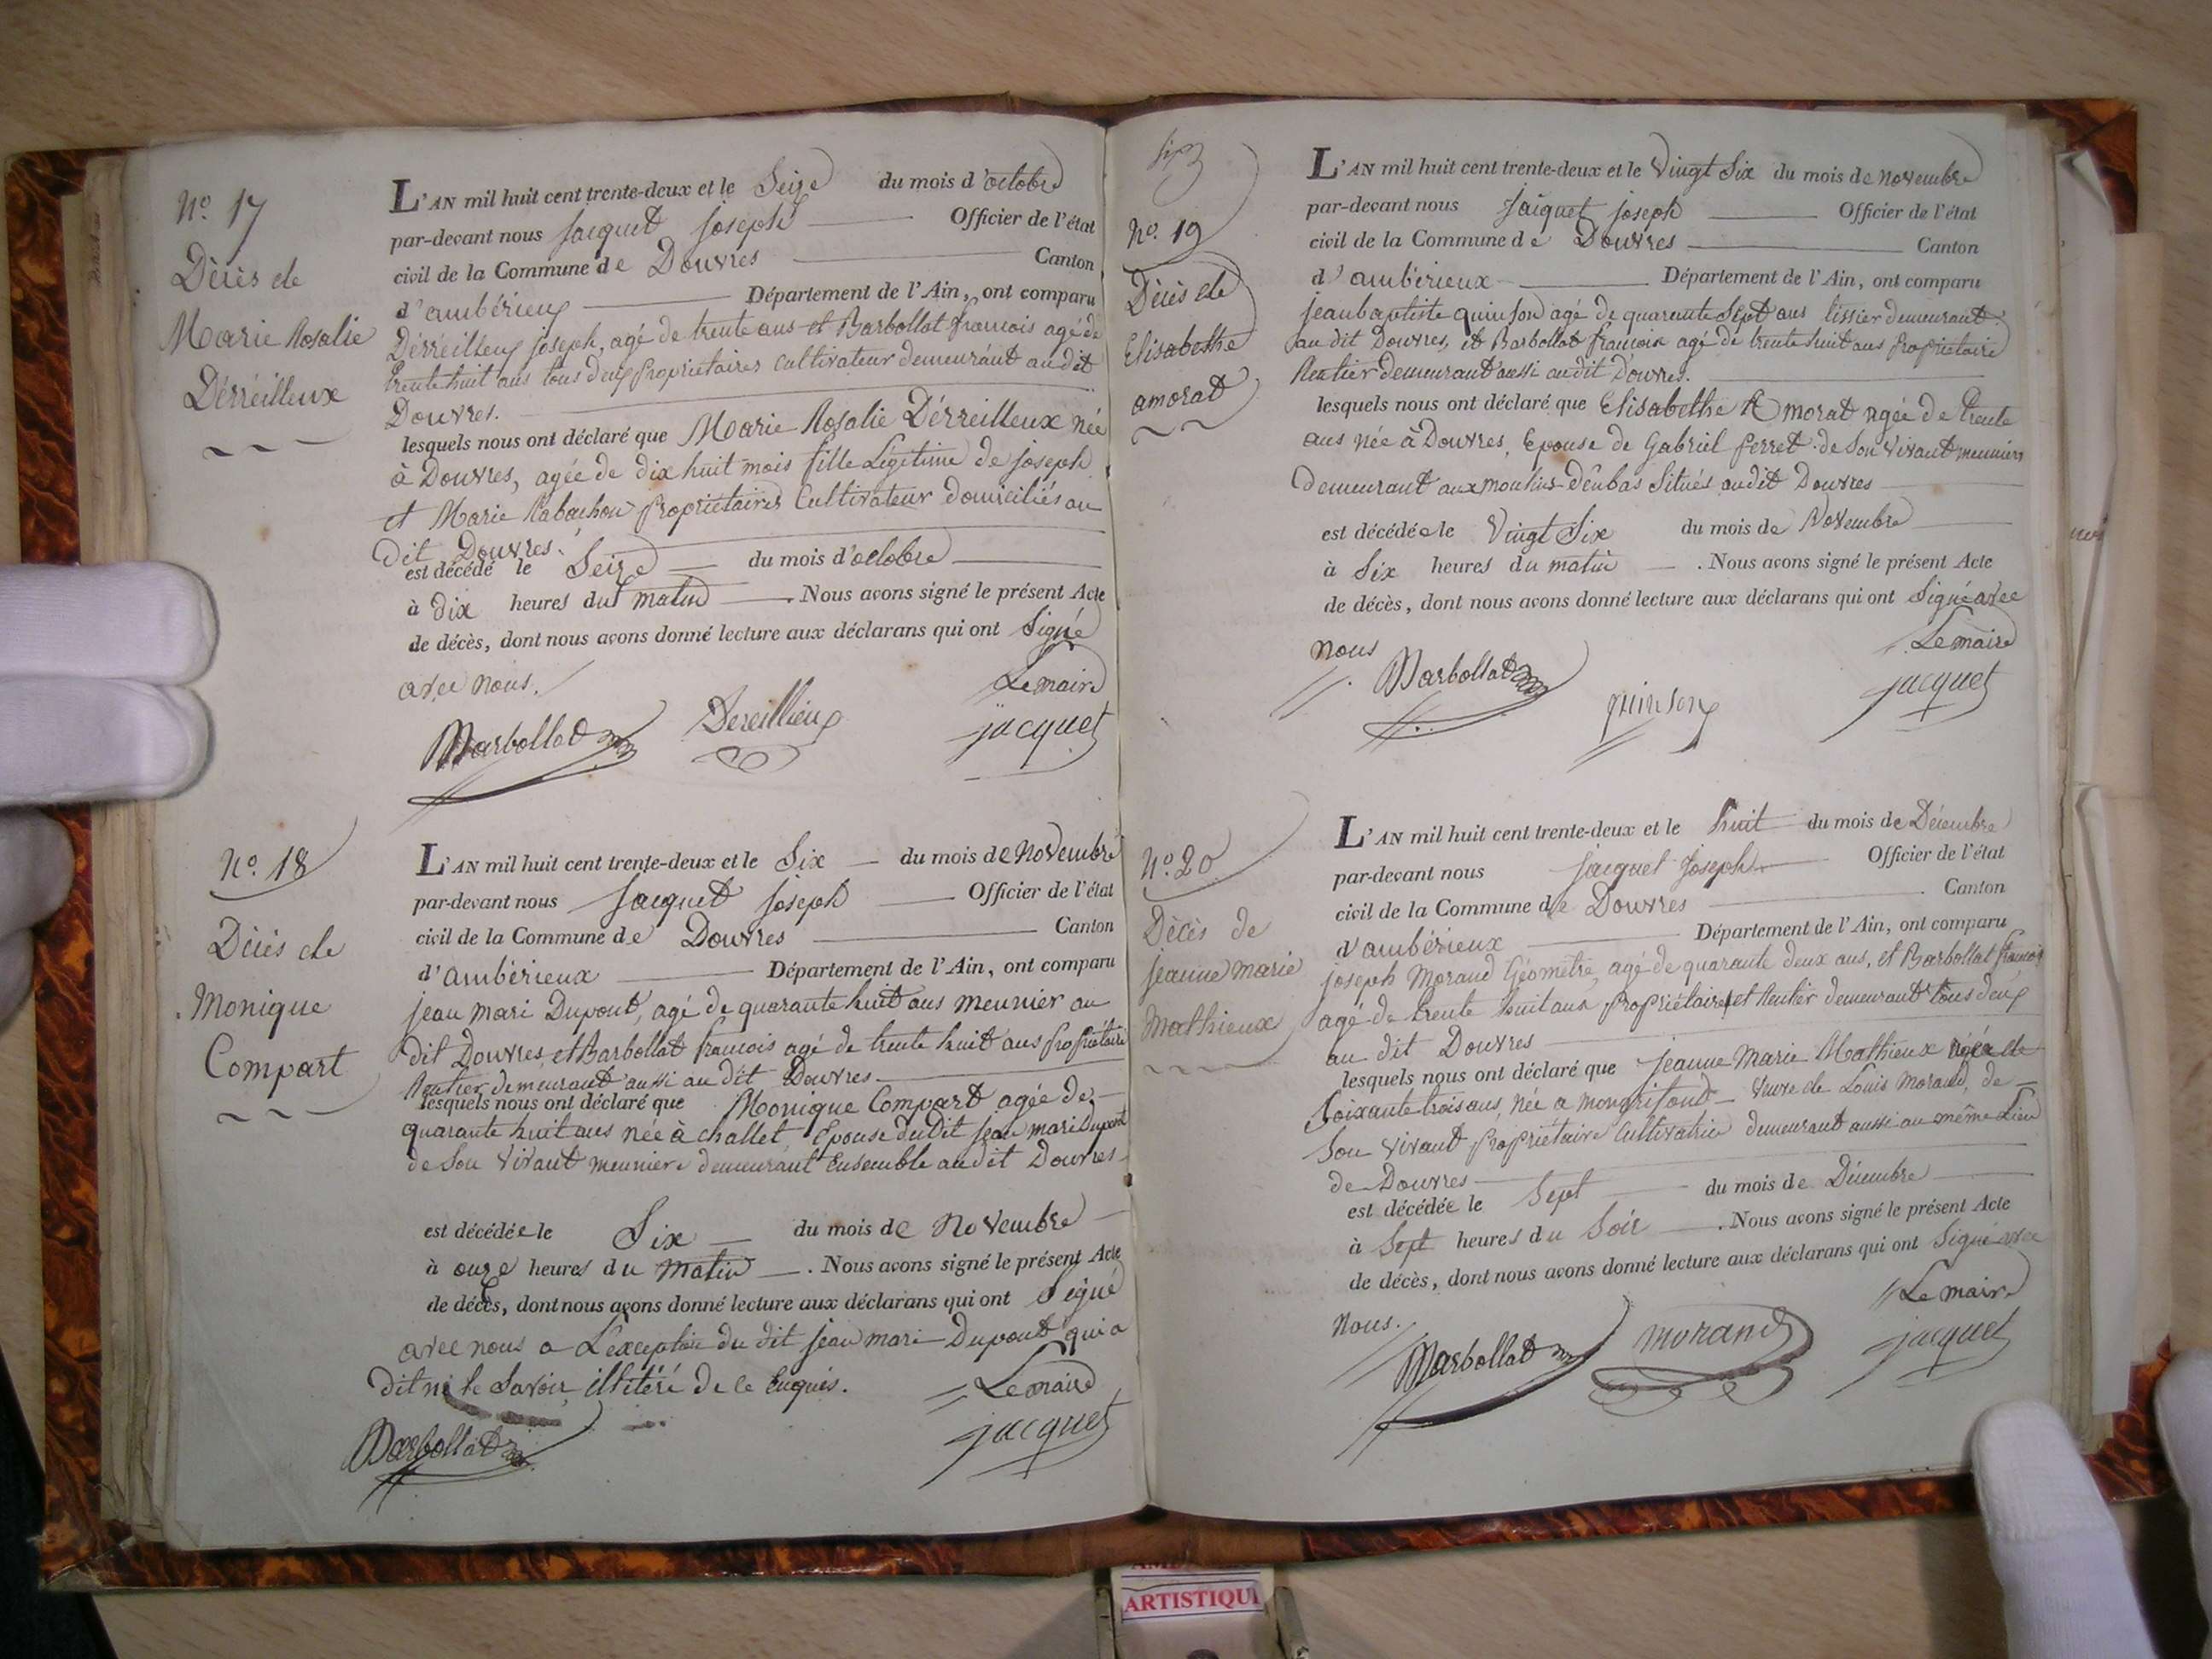 N.º 17
Décès de
Marie Rosalie
Dérréilleux
L'AN mil huit cent trente-deux et le Seize du mois d'octobre
par-devant nous Jacquet joseph Officier de l'état
civil de la Commune de Douvres Canton
d'ambérieux Département de l'Ain, ont comparu
Dérréilleux joseph, agé de trente ans et Barbollat francois agé de
trente huit ans tous deux Propriétaires cultivateur demeurant audit
Douvres.
lesquels nous ont déclaré que Marie Rosalie Dérréilleux née
à Douvres, agée de dix huit mois fille Légitime de joseph
et Marie Rabachon Propriétaires Cultivateur domiciliés au
dit Douvres.
est décédé le Seize du mois d'octobre
à dix heures du matin. Nous avons signé le présent Acte
de décès, dont nous avons donné lecture aux déclarans qui ont Signé
avec nous.
Le maire
Barbollat Dereillieux jacquet
N.º 18
Décès de
Monique
Compart
L'AN mil huit cent trente-deux et le Six du mois de Novembre
par-devant nous Jacquet joseph Officier de l'état
civil de la Commune de Douvres Canton
d'ambérieux Département de l'Ain, ont comparu
jean mari Dupont, agé de quarante huit ans meunier au
dit Douvres et Barbollat francois agé de trente huit ans Propriétaire
Rentier demeurant aussi au dit Douvres
lesquels nous ont déclaré que Monique Compart agée de
quarante huit ans née à challet, Epouse dudit jean mari Dupont
de Son Vivant meuniere demeurant Ensemble audit Douvres
est décédée le Six du mois de Novembre
à onze heures du matin. Nous avons signé le présent Acte
de décès, dont nous avons donné lecture aux déclarans qui ont Signé
avec nous a L'exception du dit jean mari Dupont qui a
dit ne le Savoir illitéré de ce Enquis.
Le maire
Barbollat jacquet
N.º 19
Décès de
Elisabethe
amorat
L'AN mil huit cent trente-deux et le Vingt Six du mois de novembre
par-devant nous Jacquet joseph Officier de l'état
civil de la Commune de Douvres Canton
d'ambérieux Département de l'Ain, ont comparu
jean baptiste quinson agé de quarante Sept ans tissier demeurant
au dit Douvres, et Barbollat francois agé de trente huit ans Propriétaire
Rentier demeurant aussi audit Douvres.
lesquels nous ont déclaré que Elisabethe Amorat agée de trente
ans née à Douvres, Epouse de Gabriel ferret de Son Vivant meuniere
demeurant aux moulins d'enbas Situés audit Douvres
est décédée le Vingt Six du mois de Novembre
à Six heures du matin. Nous avons signé le présent Acte
de décès, dont nous avons donné lecture aux déclarans qui ont Signé avec
nous
Le maire
Barbollat quinson jacquet
N.º 20
Décès de
jeanne marie
Mathieux
L'AN mil huit cent trente-deux et le huit du mois de Décembre
par-devant nous jacquet joseph Officier de l'état
civil de la Commune de Douvres Canton
d'ambérieux Département de l'Ain, ont comparu
joseph Morand Géomètre, agé de quarante deux ans, et Barbollat francois
agé de trente huit ans Propriétaire et Rentier demeurant tous deux
au dit Douvres
lesquels nous ont déclaré que jeanne Marie Mathieux agée de
Soixante trois ans, née a Veuve de Louis Morand, de
Son Vivant Propriétaire Cultivatrice demeurant aussi au même Lieu
de Douvres
est décédée le Sept du mois de Décembre
à Sept heures du Soir. Nous avons signé le présent Acte
de décès, dont nous avons donné lecture aux déclarans qui ont Signé avec
nous.
Le maire
Barbollat morand jacquet
ARTISTIQU